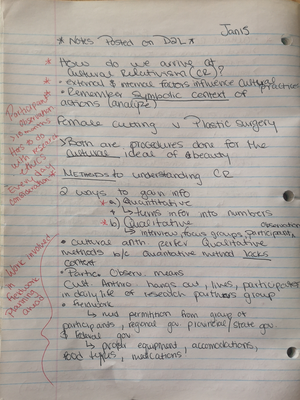 Jan 15
* Notes Posted on D2L *
* How do we arrive at
Cultural Relativism (CR)?
* • external & internal factors influence cultural practices
* • Remember symbolic context of
actions (analyze)
Female cutting v Plastic surgery
↳ Both are procedures done for the
cultural ideal of beauty
Methods to understanding CR
2 ways to gain info
* a) Quantitative
↳ turns info into numbers
* b) Qualitative
↳ interview, focus groups, participant observation
• cultural anth prefer Qualitative
methods b/c quantitative method lacks
context
• Partic. Observ. means
Cult. Anthro hangs out, lives, participates
in daily life of research partners group
• fieldwork
↳ need permission from group of
participants, regional gov provincial/state gov
& federal gov
↳ proper equipment, accomodations,
food types, medications.
Participant
observation
Has to do
with
ethics
Work involved
in
fieldwork
Planning